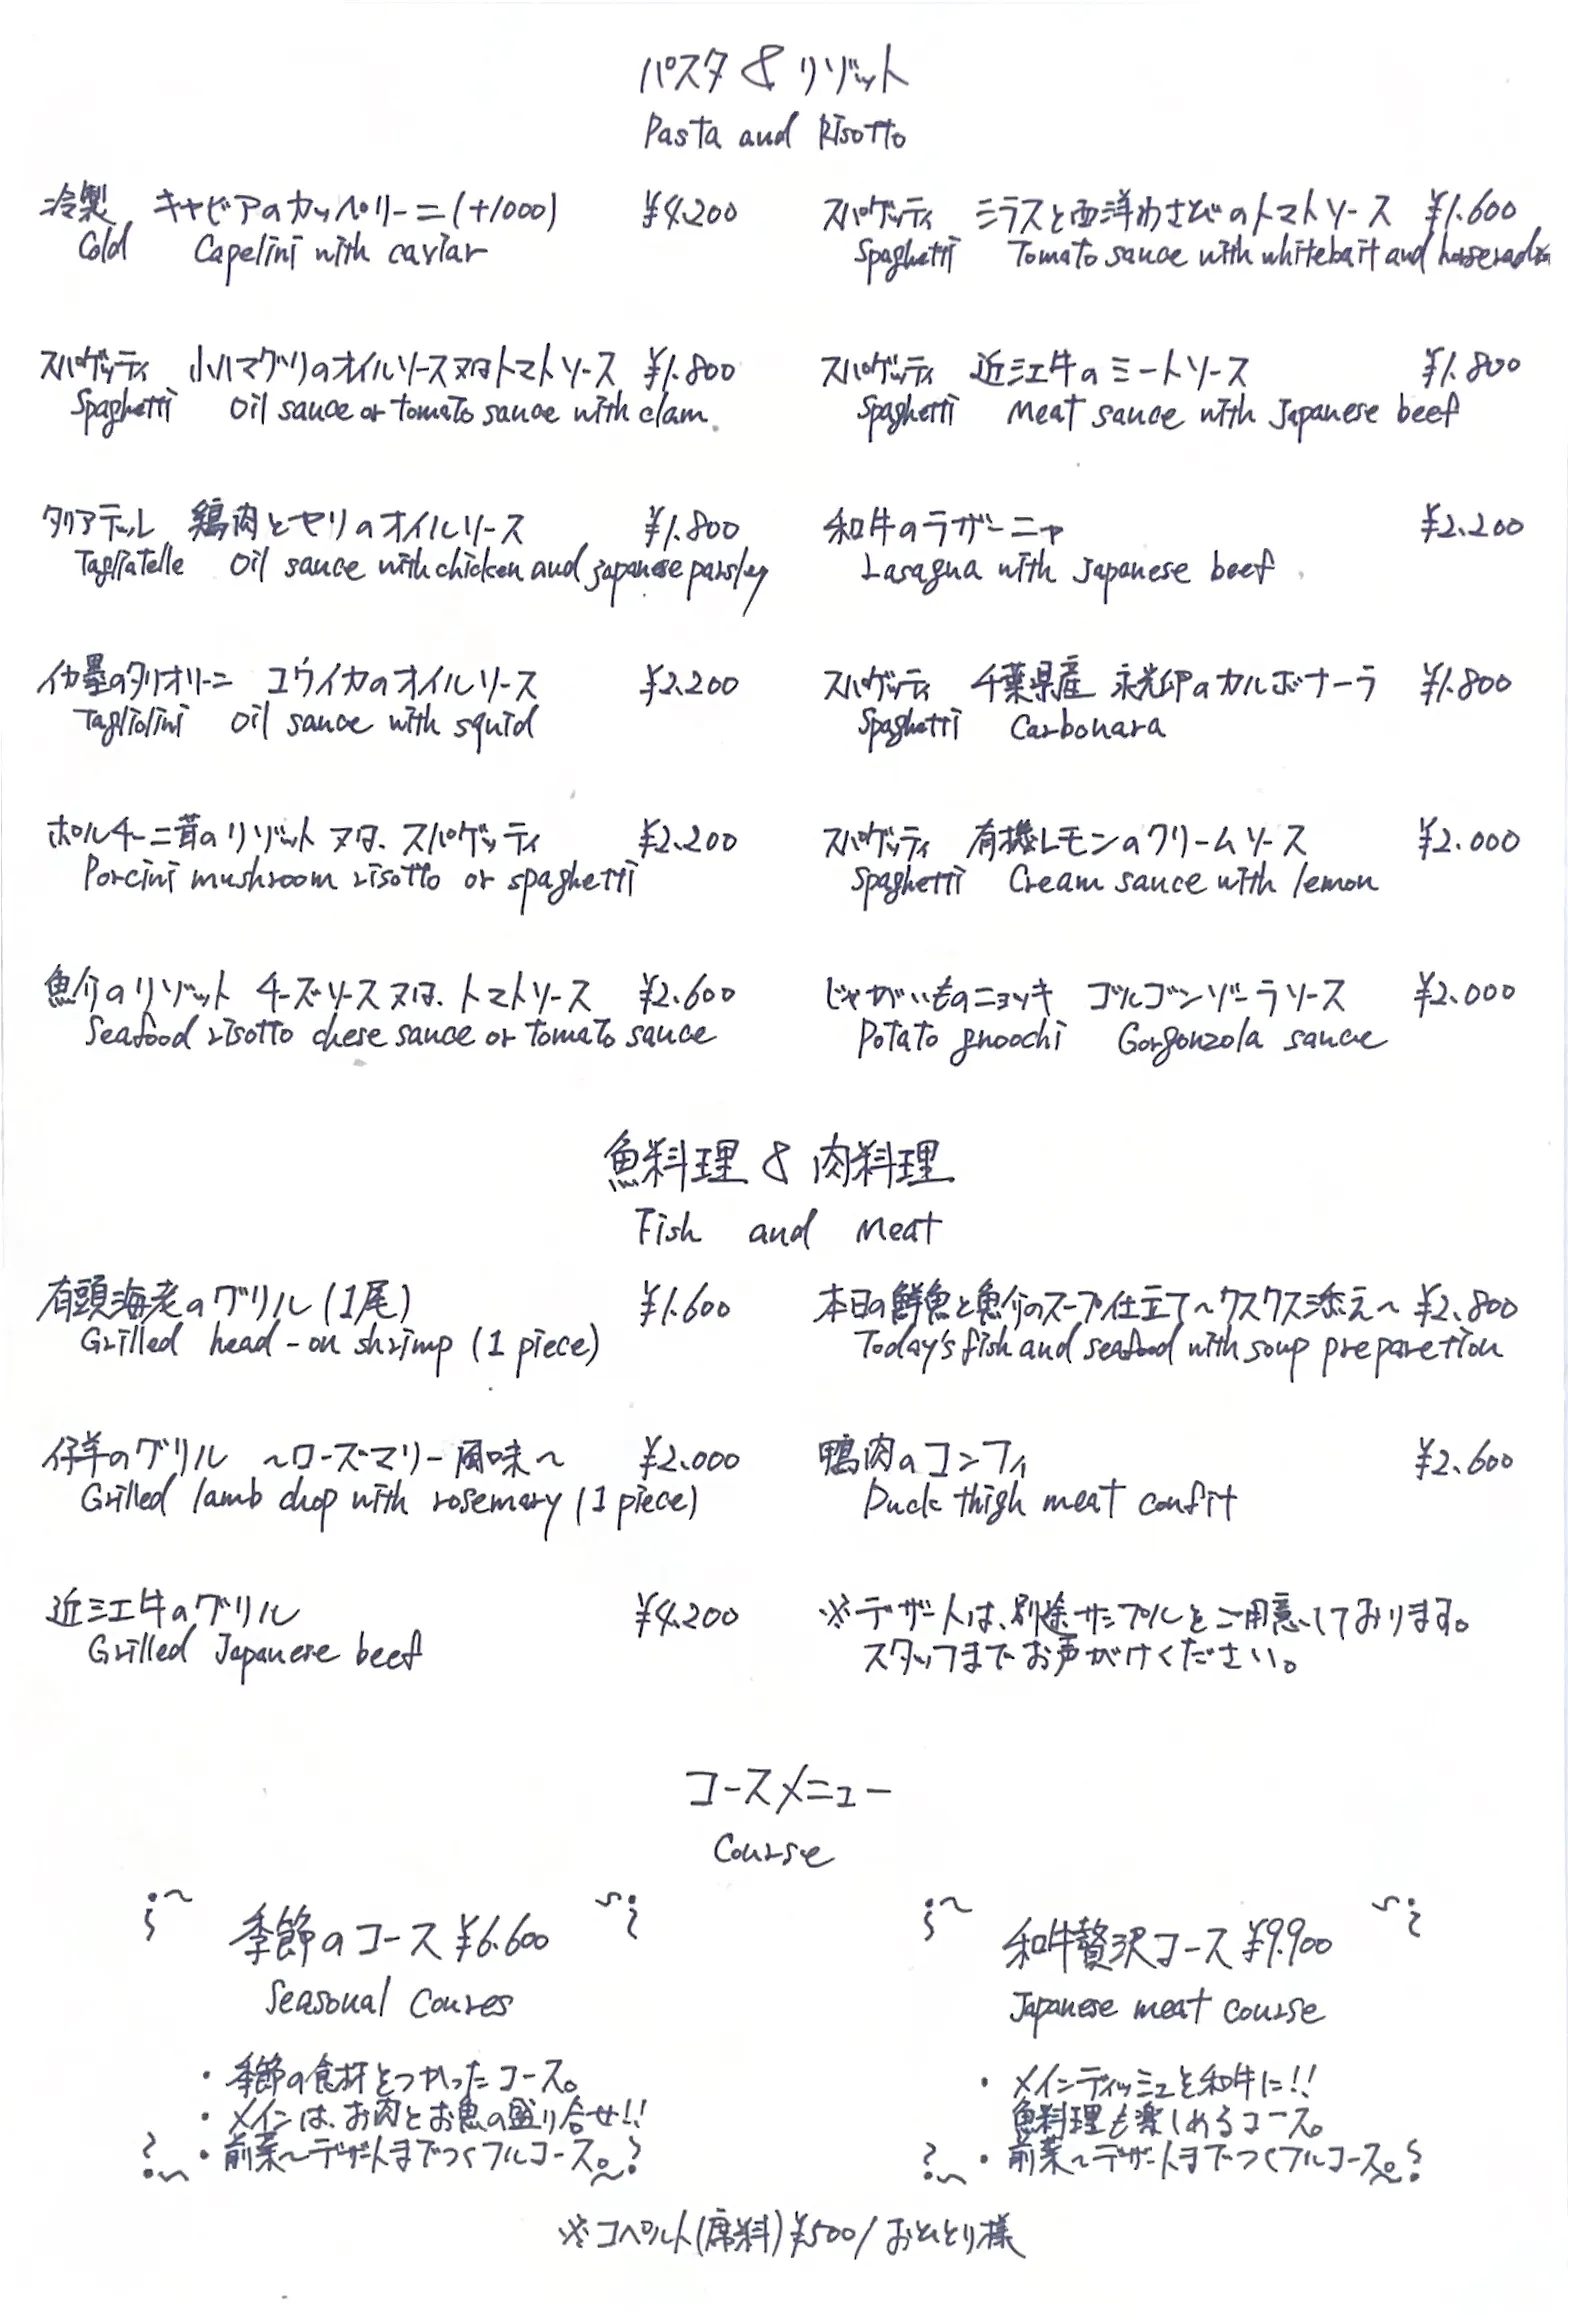 パスタ & リゾット
Pasta and Risotto
冷製 キャビアのカッペリーニ(+1000) ¥4.200
Cold Capelini with caviar
スパゲッティ シラスと西洋わさびのトマトソース ¥1.600
Spaghetti Tomato sauce with whitebait and horseradish
スパゲッティ 小ハマグリのオイルソース又はトマトソース ¥1.800
Spaghetti Oil sauce or tomato sauce with clam
スパゲッティ 近江牛のミートソース ¥1.800
Spaghetti Meat sauce with Japanese beef
タリアテッレ 鶏肉とセリのオイルソース ¥1.800
Tagliatelle Oil sauce with chicken and japanese parsley
和牛のラザーニャ ¥2.200
Lasagna with Japanese beef
イカ墨のタリオリーニ コウイカのオイルソース ¥2.200
Tagliolini Oil sauce with squid
スパゲッティ 千葉県産 永光卵のカルボナーラ ¥1.800
Spaghetti Carbonara
ポルチーニ茸のリゾット又は、スパゲッティ ¥2.200
Porcini mushroom risotto or spaghetti
スパゲッティ 有機レモンのクリームソース ¥2.000
Spaghetti Cream sauce with lemon
魚介のリゾット チーズソース又は、トマトソース ¥2.600
Seafood risotto chese sauce or tomato sauce
じゃがいものニョッキ ゴルゴンゾーラソース ¥2.000
Potato gnoochi Gorgonzola sauce
魚料理 & 肉料理
Fish and Meat
有頭海老のグリル (1尾) ¥1.600
Grilled head-on shrimp (1 piece)
本日の鮮魚と魚介のスープ仕立て~クスクス添え~ ¥2.800
Today's fish and seafood with soup preparetion
仔羊のグリル ~ローズマリー風味~ ¥2.000
Grilled lamb chop with rosemary (1 piece)
鴨肉のコンフィ ¥2.600
Duck thigh meat confit
近江牛のグリル ¥4.200
Grilled Japanese beef
※デザートは、別途サンプルをご用意しております。
スタッフまでお声がけください。
コースメニュー
Course
季節のコース ¥6.600
Seasonal Coures
・季節の食材をつかったコース。
・メインは、お肉とお魚の盛り合せ!!
・前菜~デザートまでつくフルコース。
和牛贅沢コース ¥9.900
Japanese meat course
・メインディッシュを和牛に!!
魚料理も楽しめるコース。
・前菜~デザートまでつくフルコース。
※コペルト(席料)¥500/おひとり様